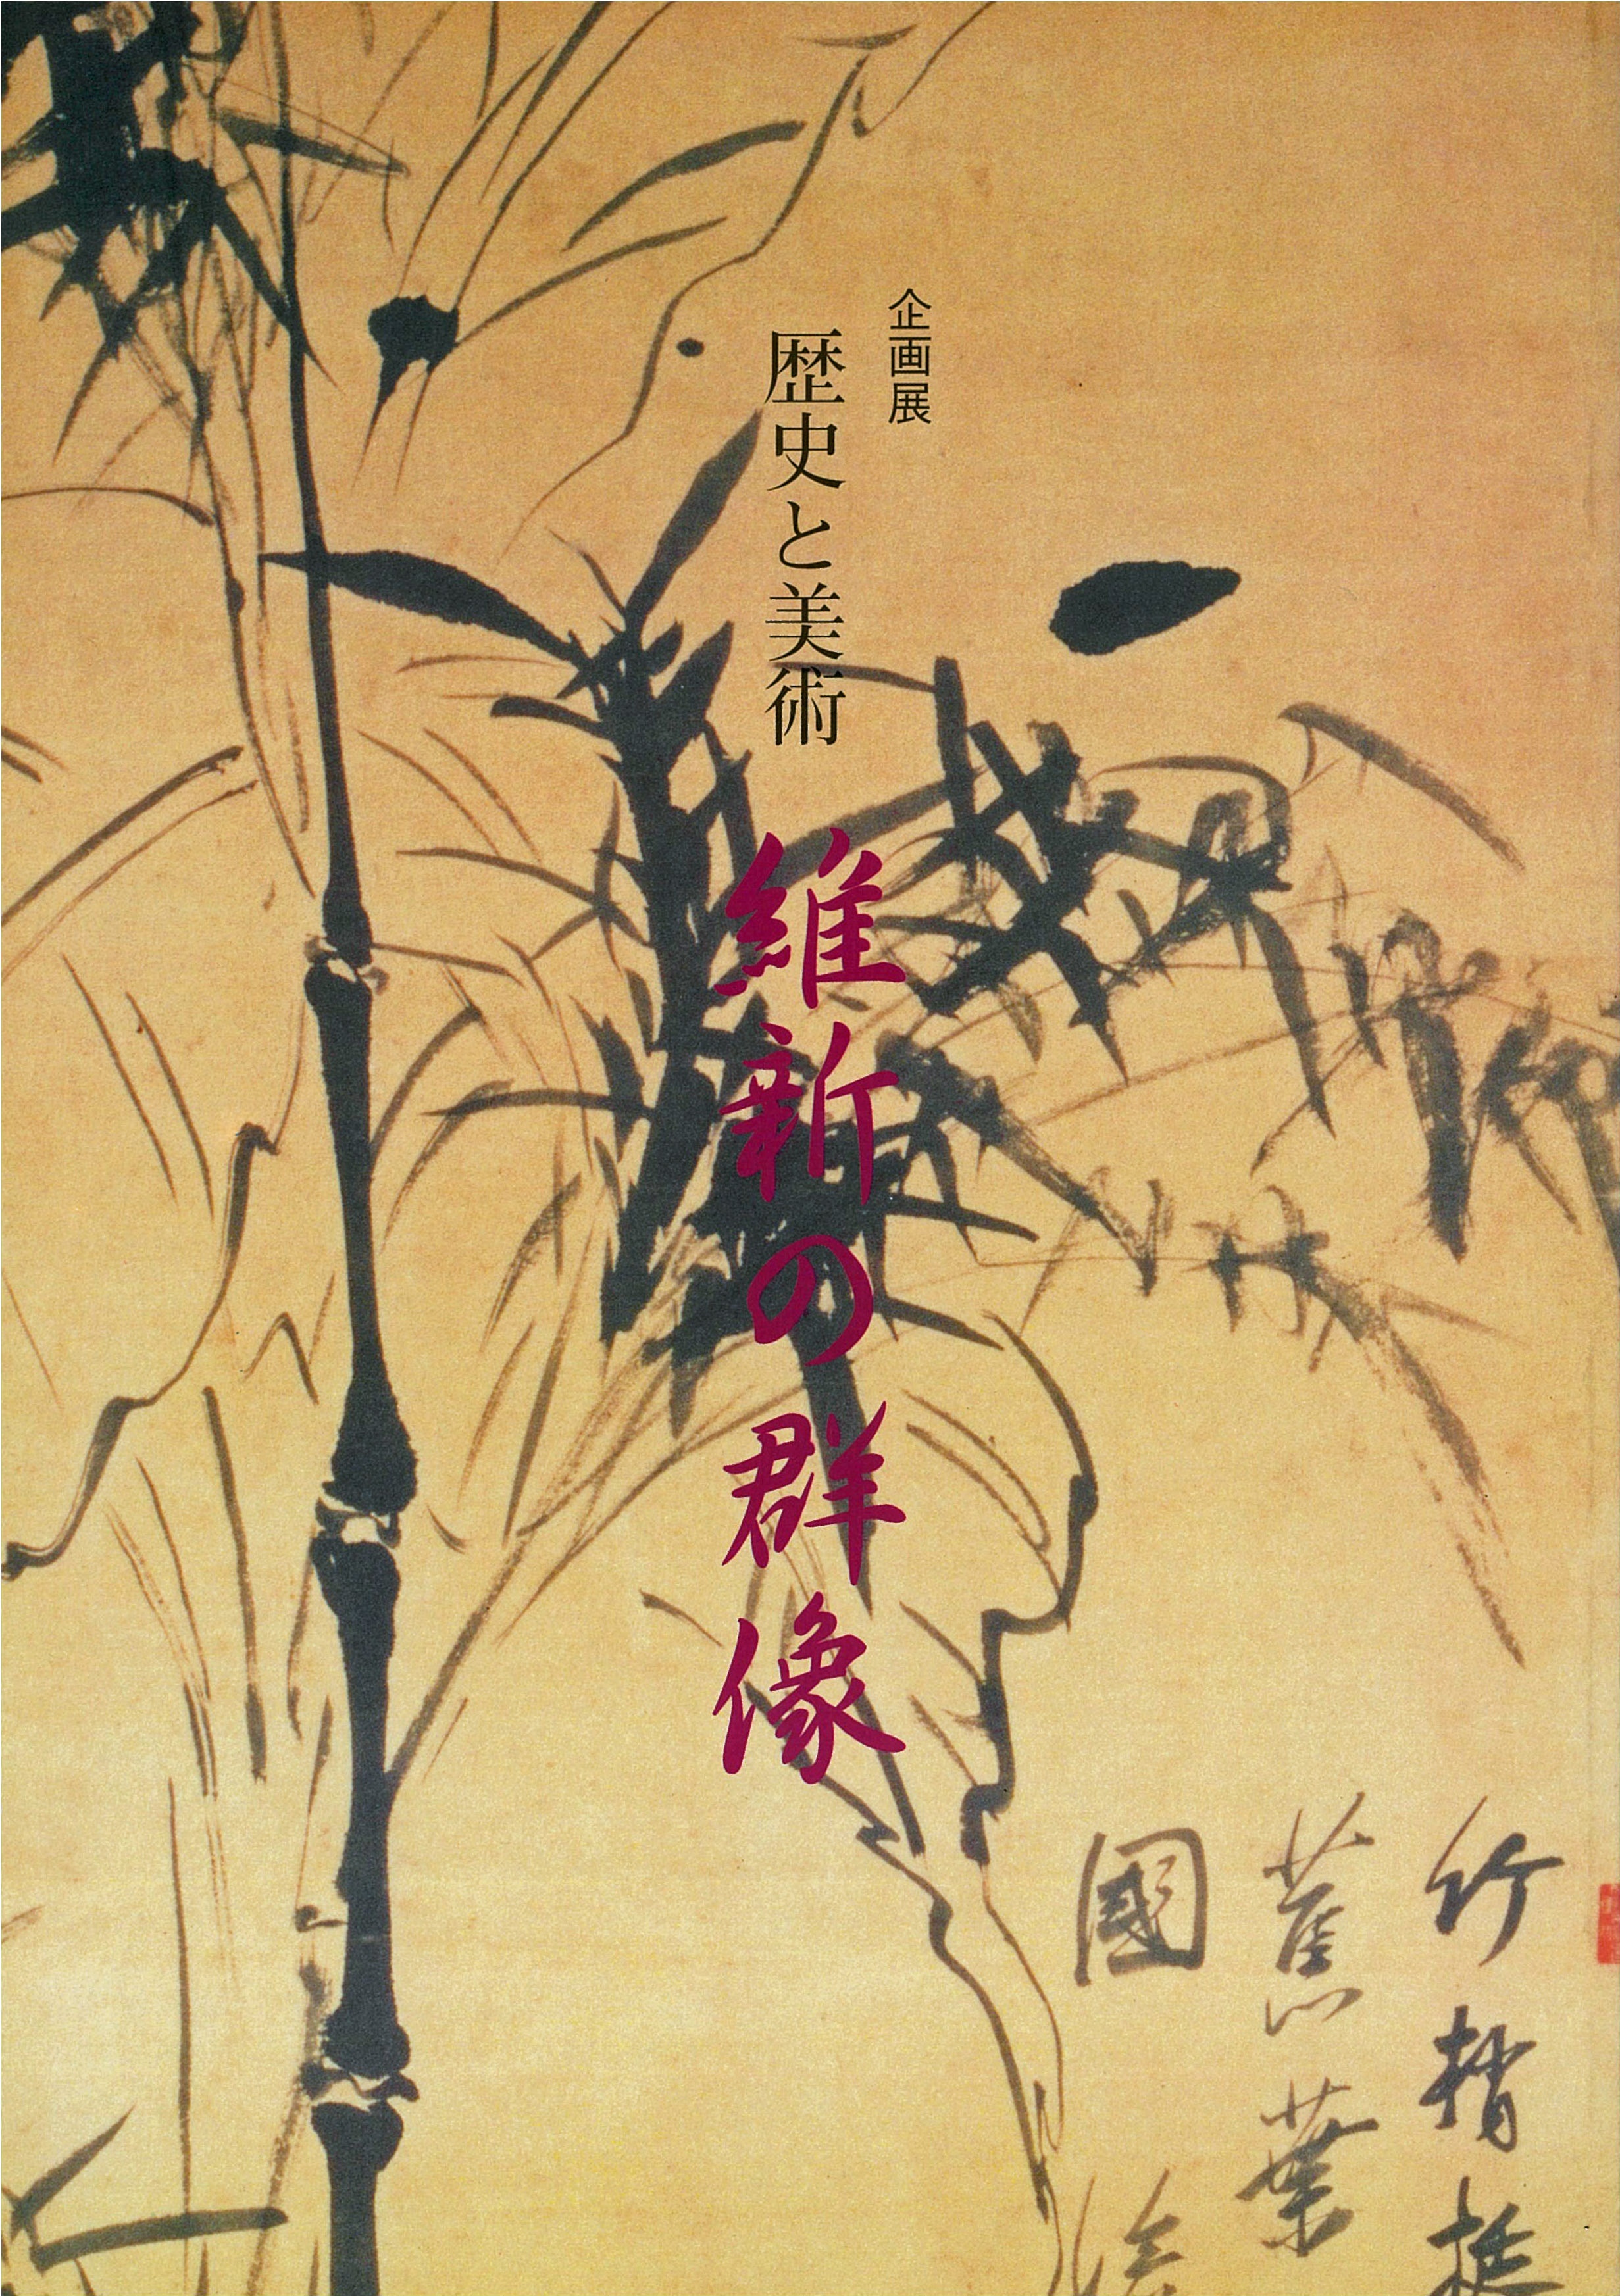 企画展
歴史と美術
維新の群像
竹
蕉葉
國